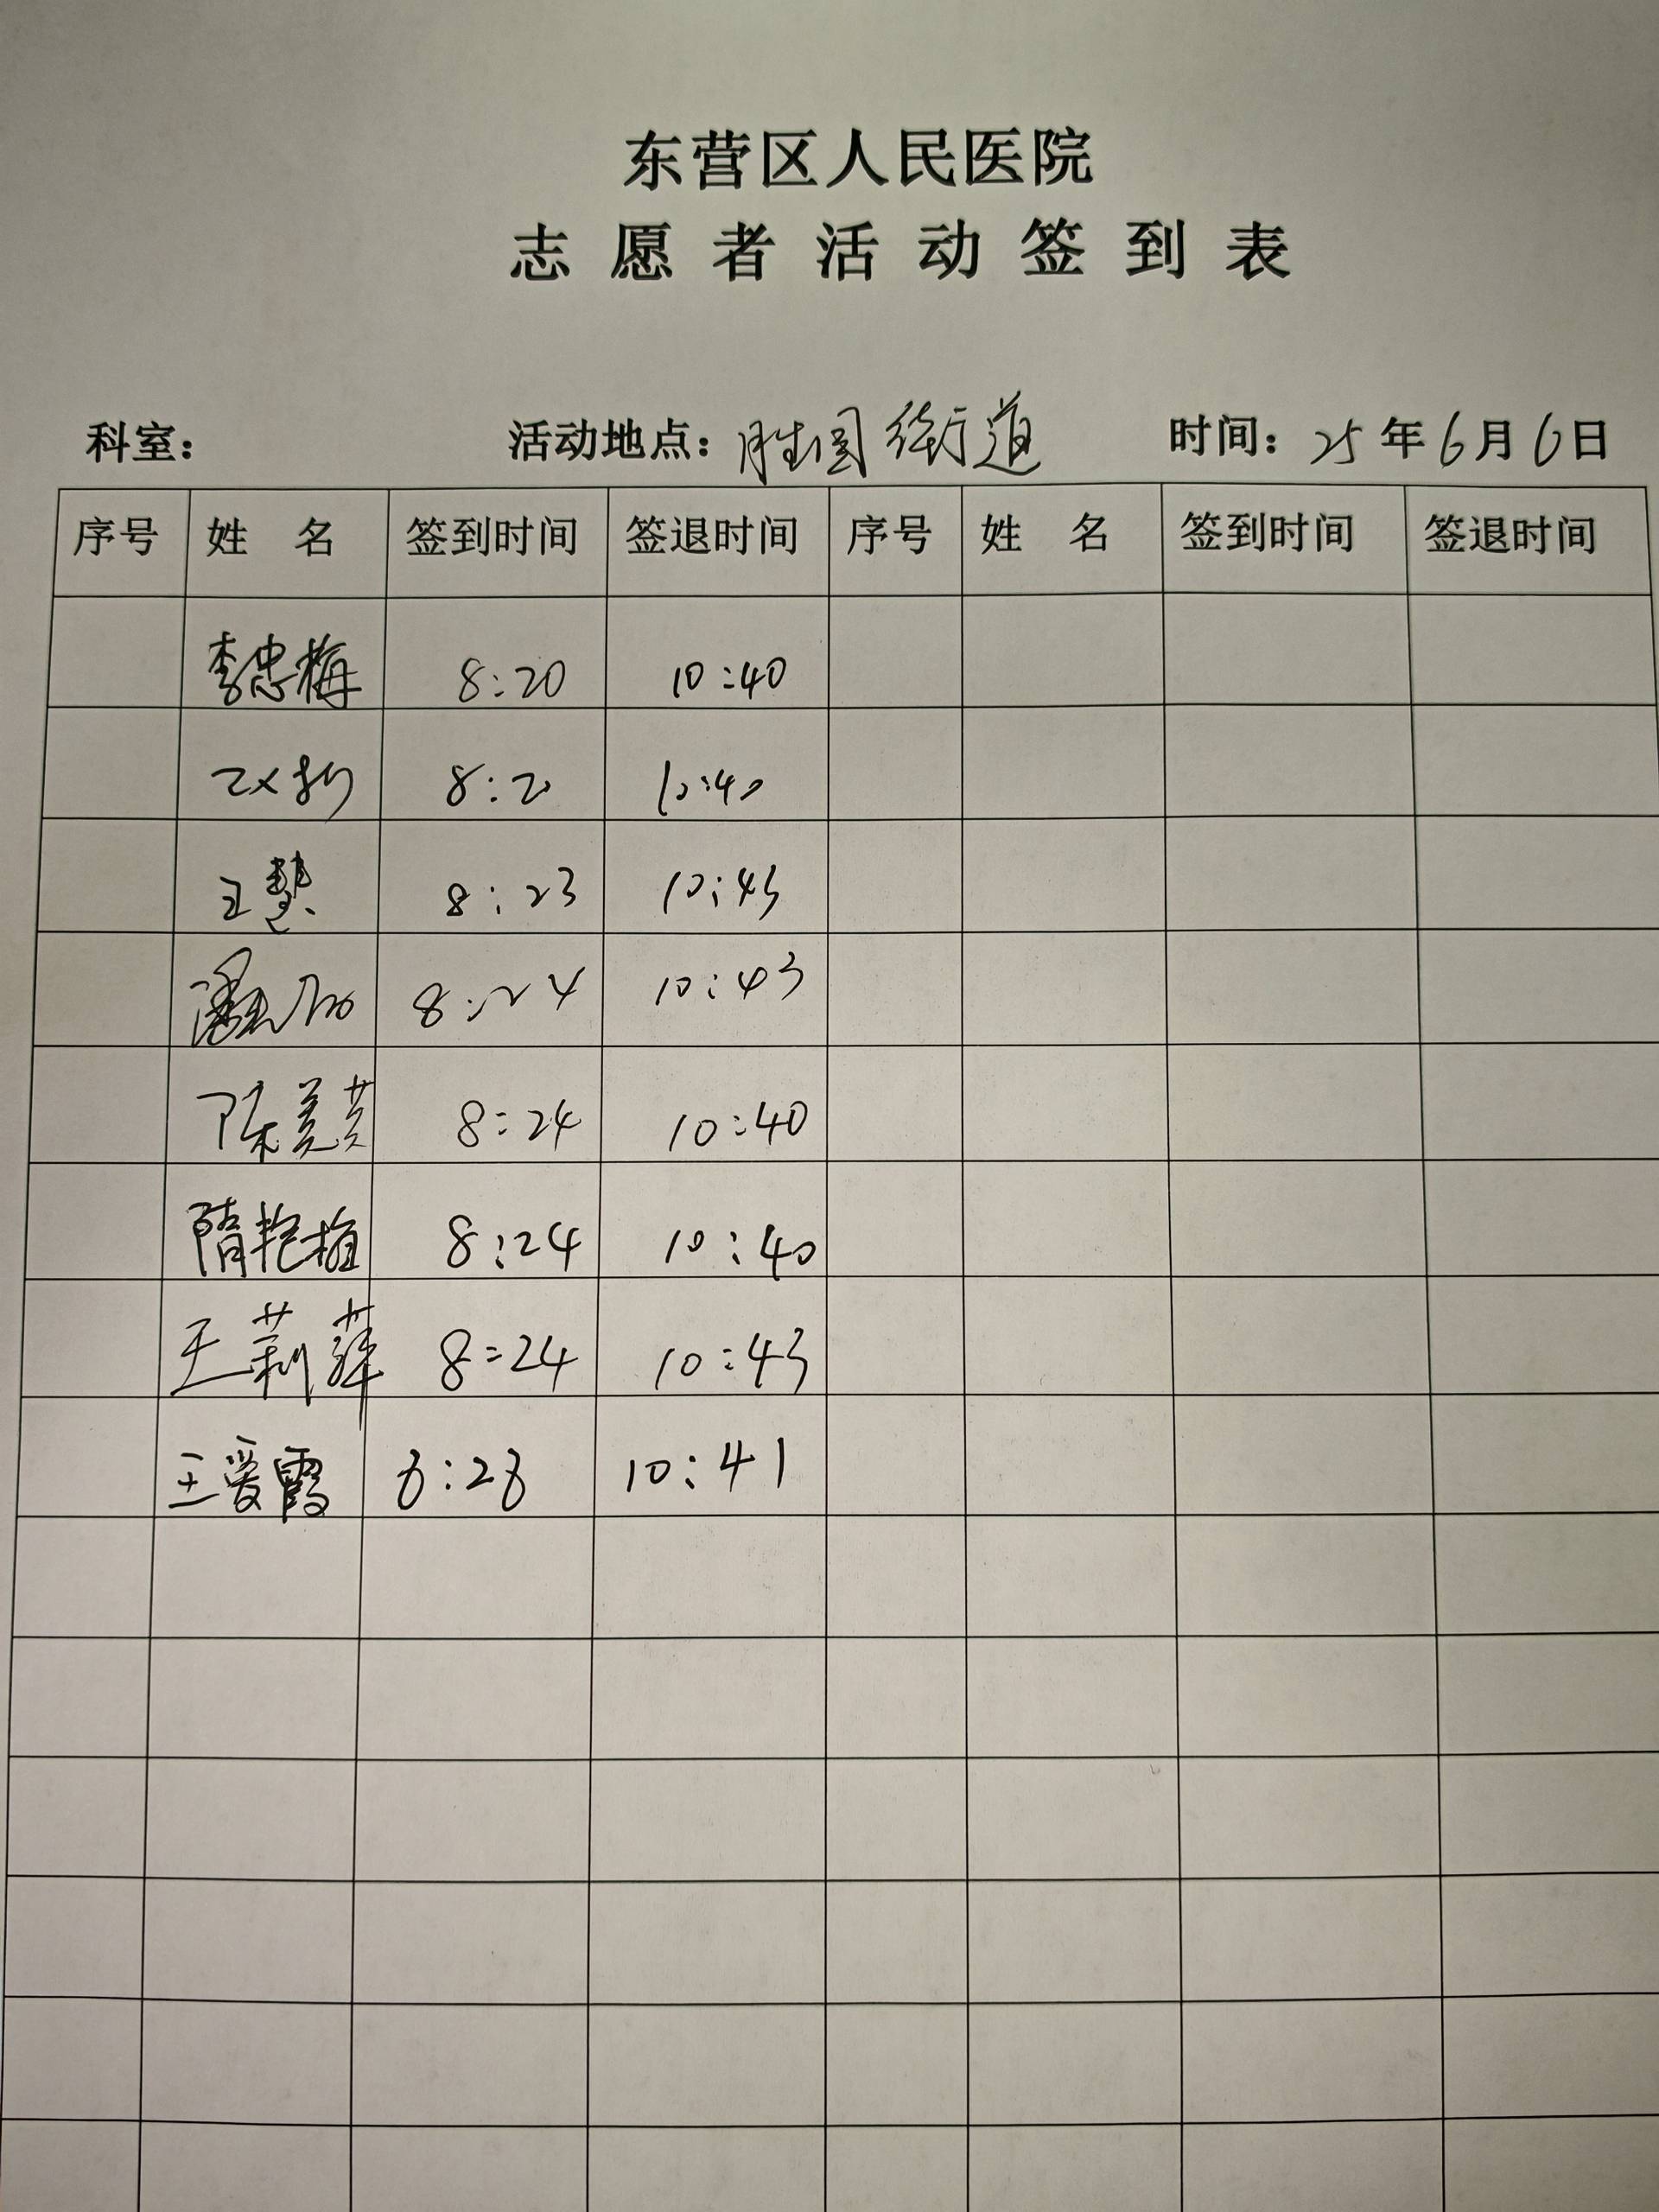 东营区人民医院
志愿者活动签到表
科室： 活动地点：胜园街道 时间：25年6月6日
序号 姓名 签到时间 签退时间 序号 姓名 签到时间 签退时间
李忠梅 8:20 10:40
8:20 10:40
王慧 8:23 10:43
潘 8:24 10:43
陈美芝 8:24 10:40
隋艳梅 8:24 10:40
王莉萍 8:24 10:43
王爱霞 8:28 10:41